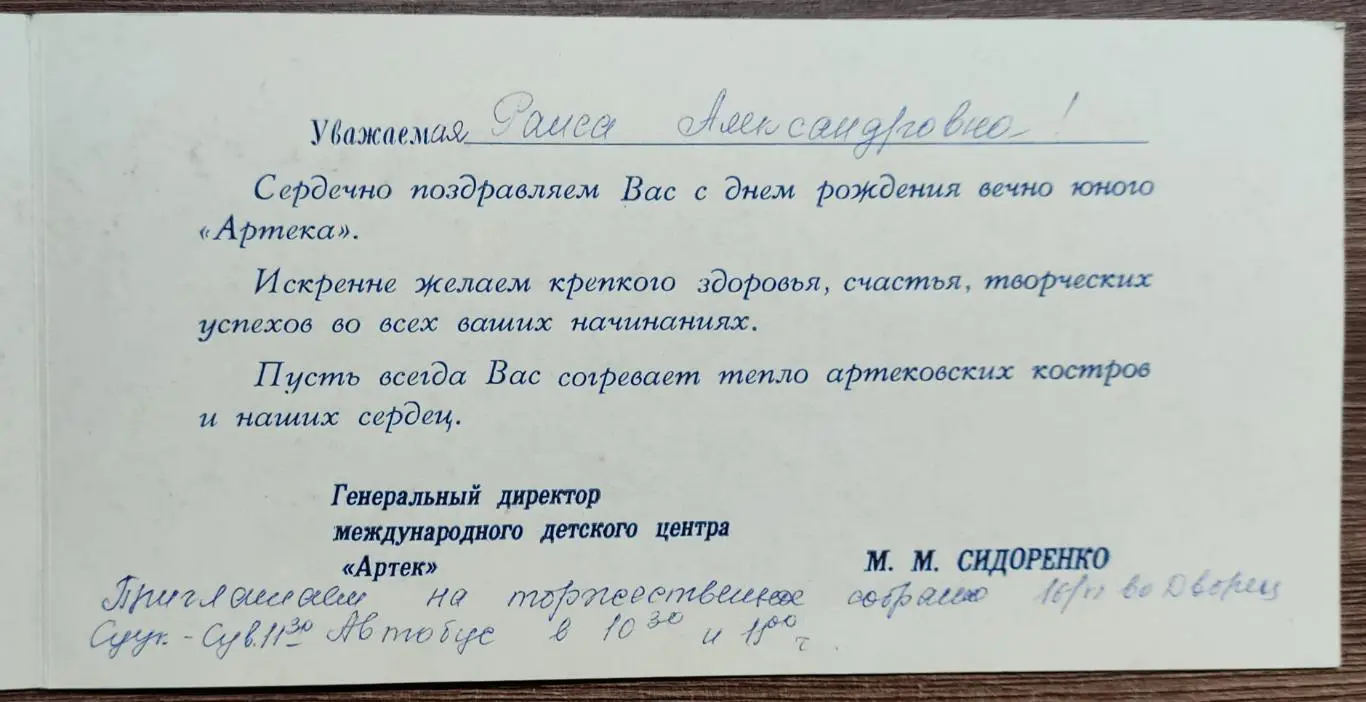 Уважаемая Раиса Александровна!
Сердечно поздравляем Вас с днем рождения вечно юного
«Артека».
Искренне желаем крепкого здоровья, счастья, творческих
успехов во всех ваших начинаниях.
Пусть всегда Вас согревает тепло артековских костров
и наших сердец.
Генеральный директор
международного детского центра
«Артек»
М. М. СИДОРЕНКО
Приглашаем на торжественное собрание 16/VI во Дворец
Суук-Су в 11 30 Автобус в 10 30 и 11 00 ч.